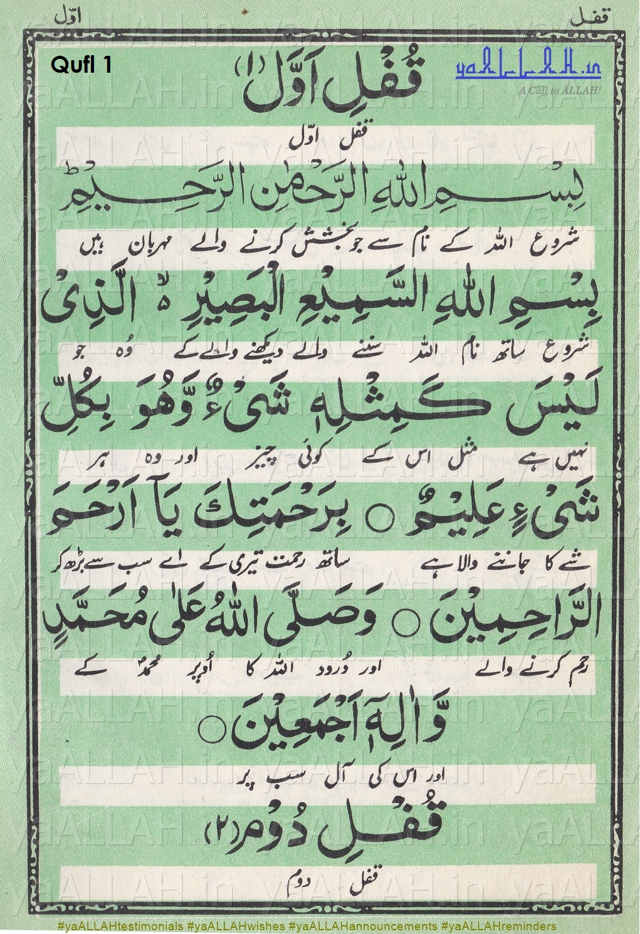 قفل اوّل
Qufl 1
قُفْلِ اَوَّل (۱)
yaALLAH.in
A Call to ALLAH!
قفل اوّل
بِسْمِ اللهِ الرَّحْمٰنِ الرَّحِيْمِ ط
شروع اللہ کے نام سے جو بخشش کرنے والے مہربان ہیں
بِسْمِ اللهِ السَّمِيْعِ الْبَصِيْرِ ہ لا الَّذِىْ
شروع ساتھ نام اللہ سننے والے دیکھنے والے کے وُہ جو
لَيْسَ كَمِثْلِهٖ شَىْءٌ وَّهُوَ بِكُلِّ
نہیں ہے مثل اس کے کوئی چیز اور وہ ہر
شَىْءٍ عَلِيْمٌ ○ بِرَحْمَتِكَ يَآ اَرْحَمَ
شے کا جاننے والا ہے ساتھ رحمت تیری کے اے سب سے بڑھ کر
الرَّاحِمِيْنَ ○ وَصَلَّى اللهُ عَلٰى مُحَمَّدٍ
رحم کرنے والے اور دُرود اللہ کا اُوپر محمدؐ کے
وَّاٰلِهٖٓ اَجْمَعِيْنَ ○
اور اس کی آل سب پر
قُفْلِ دُوْم (۲)
قفل دوم
#yaALLAHtestimonials #yaALLAHwishes #yaALLAHannouncements #yaALLAHreminders